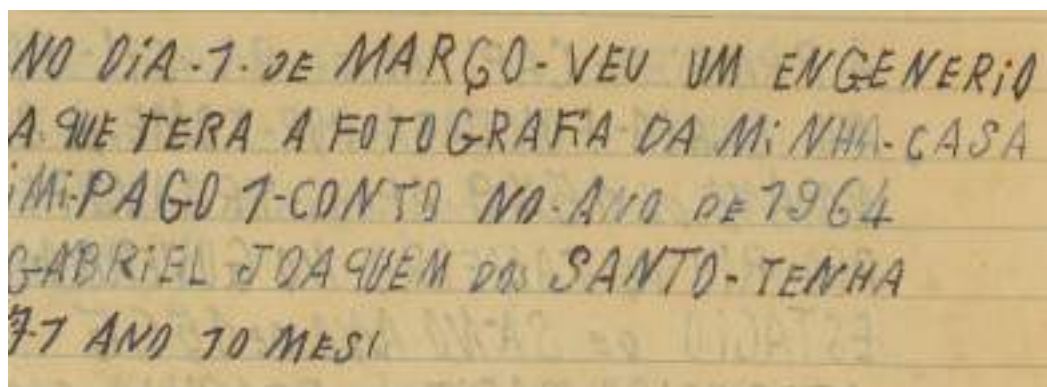 NO DIA-1-DE MARÇO-VEU UM ENGENERIO
A QUE TERA A FOTOGRAFIA DA MINHA-CASA
IMI-PAGO 1-CONTO NO-ANO DE 1964
GABRIEL JOAQUEM DOS SANTO-TENHA
71 ANO 10 MESI